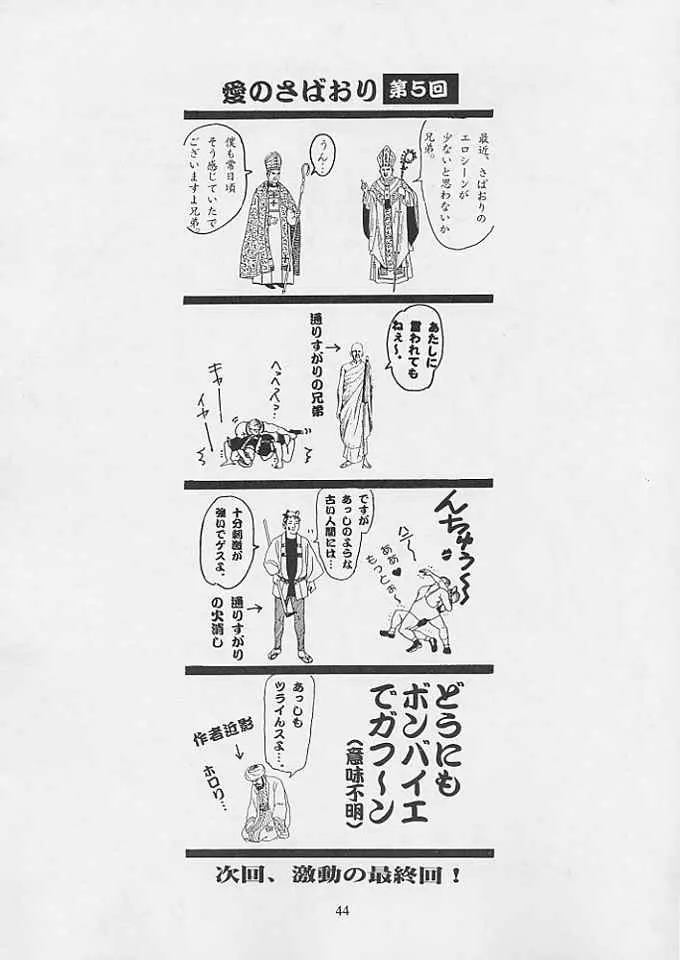 愛のさばおり 第５回
最近、さばおりの
エロシーンが
少ないと思わないか
兄弟。
うん…
僕も常日頃
そう感じていたで
ございますよ兄弟。
あたしに
言われても
ねぇ〜。
通りすがりの兄弟
→
へっへっへっ…
キャーーー
イヤーーー
んちゅう〜〜
ハァー
ああ♥
もっとぉ〜
ですが
あっしのような
古い人間には…
十分刺激が
強いでゲスよ。
通りすがり
の火消し
→
どうにも
ボンバイエ
でガフ〜ン
（意味不明）
あっしも
ツライんスよ…。
作者近影
→
ホロリ…
次回、激動の最終回！
44